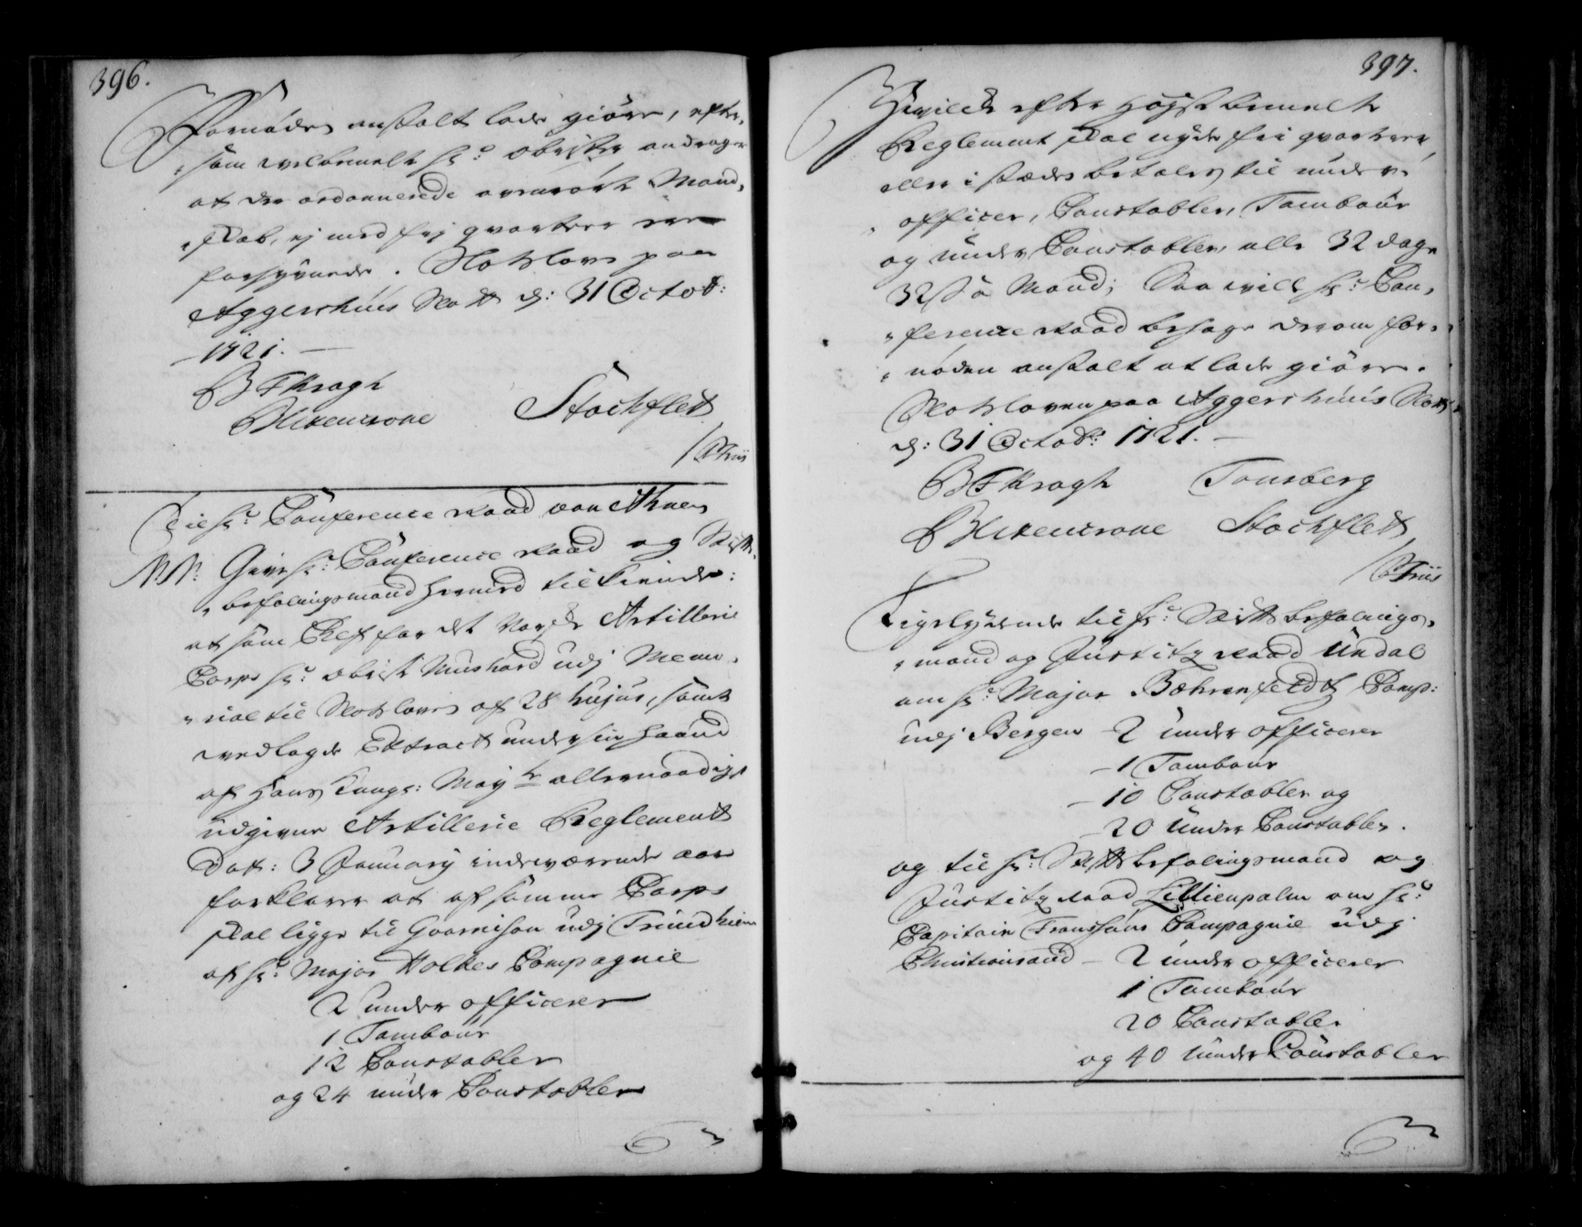 396.
Fornøden anstalt lade giøre, efter,
„som velbemelte hr: Obrister andrager
at den ordonnerede overførte Mand,
„skab, ej med frj qvarteer ere
forsÿnede. Slotzlowen paa
Aggershuus Slott d: 31 Octob:
1721.
B F Kragh
B Hiteucrone Stockflett
/ P Friis
Til hr: Conference Raad von Ahnen
NB: Giver hr: Conference Raad og Stift,
„befalingsmand hermed tilkiende:
at som Chef for det Norske Artillerie
Corps hr: Obrist Mushard udj Memo,
„rial til Slotzlowen af 28 hujus, samt
vedlagde Extract under sin haand
af Hans Kongl: Mayts allernaadigst
udgivne Artillerie Reglement
Dat: 3 January indeværende aar
forklarer at af samme Corps
skal ligge til Guarnison udj Trundhiem
af hr: Major Holtes Compagnie
2 under officerer
1 Tambour
12 Constabler
og 24 under Constabler
397.
Hvilcke efter højstbemelte
Reglement skal nyde frj qvarteer,
eller i stæden betales til under
„officer, Constabler, Tambour
og under Constabler, alle 32 dage
32 s a Mand; Saa vill hr: Con,
„ference Raad behage derom for,
„nøden anstalt at lade giøre.
Slotzlowen paa Aggershuus Slott
d: 31 Octob: 1721.
B F Kragh Tonsberg
B Hiteucrone Stockflett
/ P Friis
Ligelydende til hr: Stiftbefalings,
„mand og Justitz Raad Undal
om hr: Major Bæhrenfeldtz Comp:
udj Bergen – 2 under officerer
– 1 Tambour
– 10 Constabler og
– 20 under Constabler.
og til hr: Stiftbefalingsmand og
Justitz Raad Lillienpalm om hr:
Capitain Compagnie udj
Christiansand – 2 under officerer
1 Tambour
20 Constabler
og 40 under Constabler